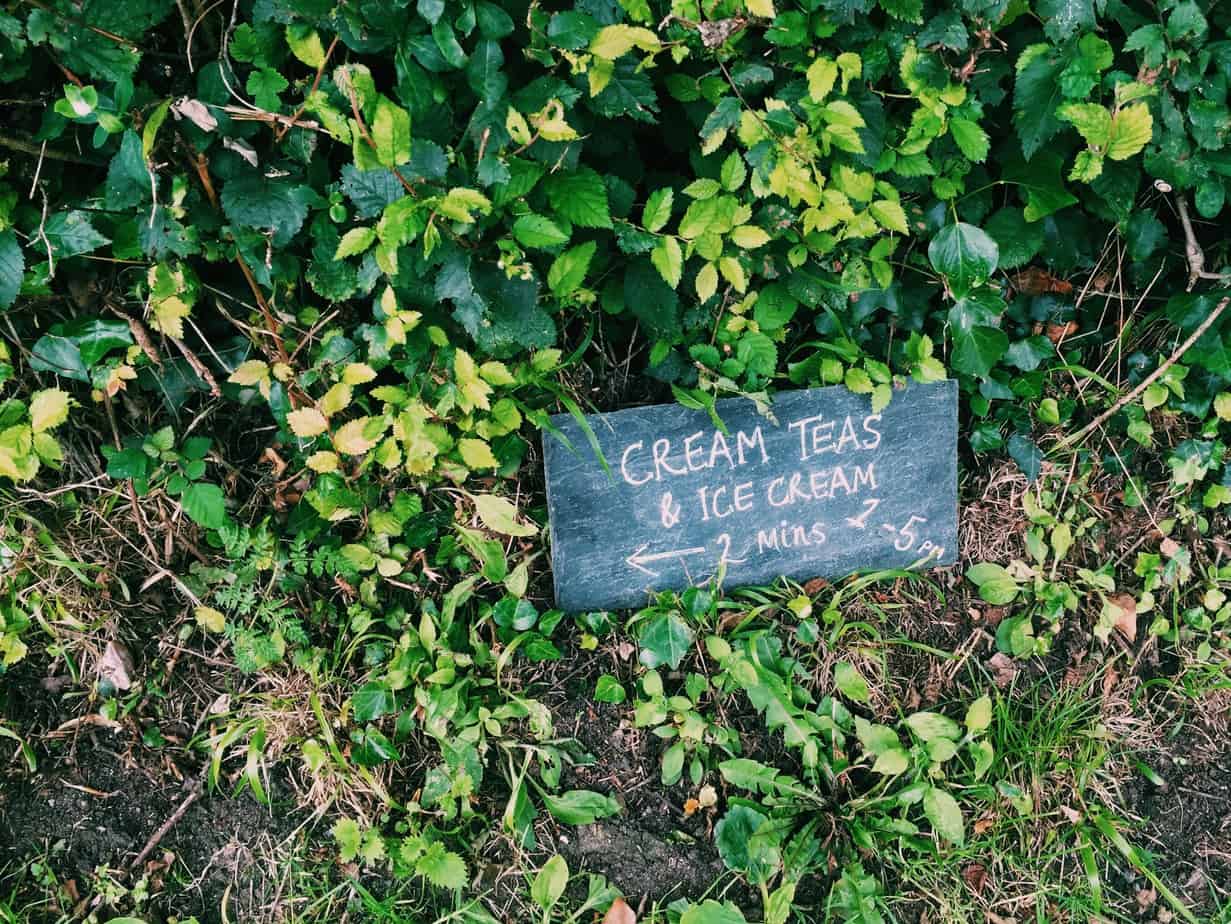 CREAM TEAS
& ICE CREAM
← 2 Mins 2-5 PM